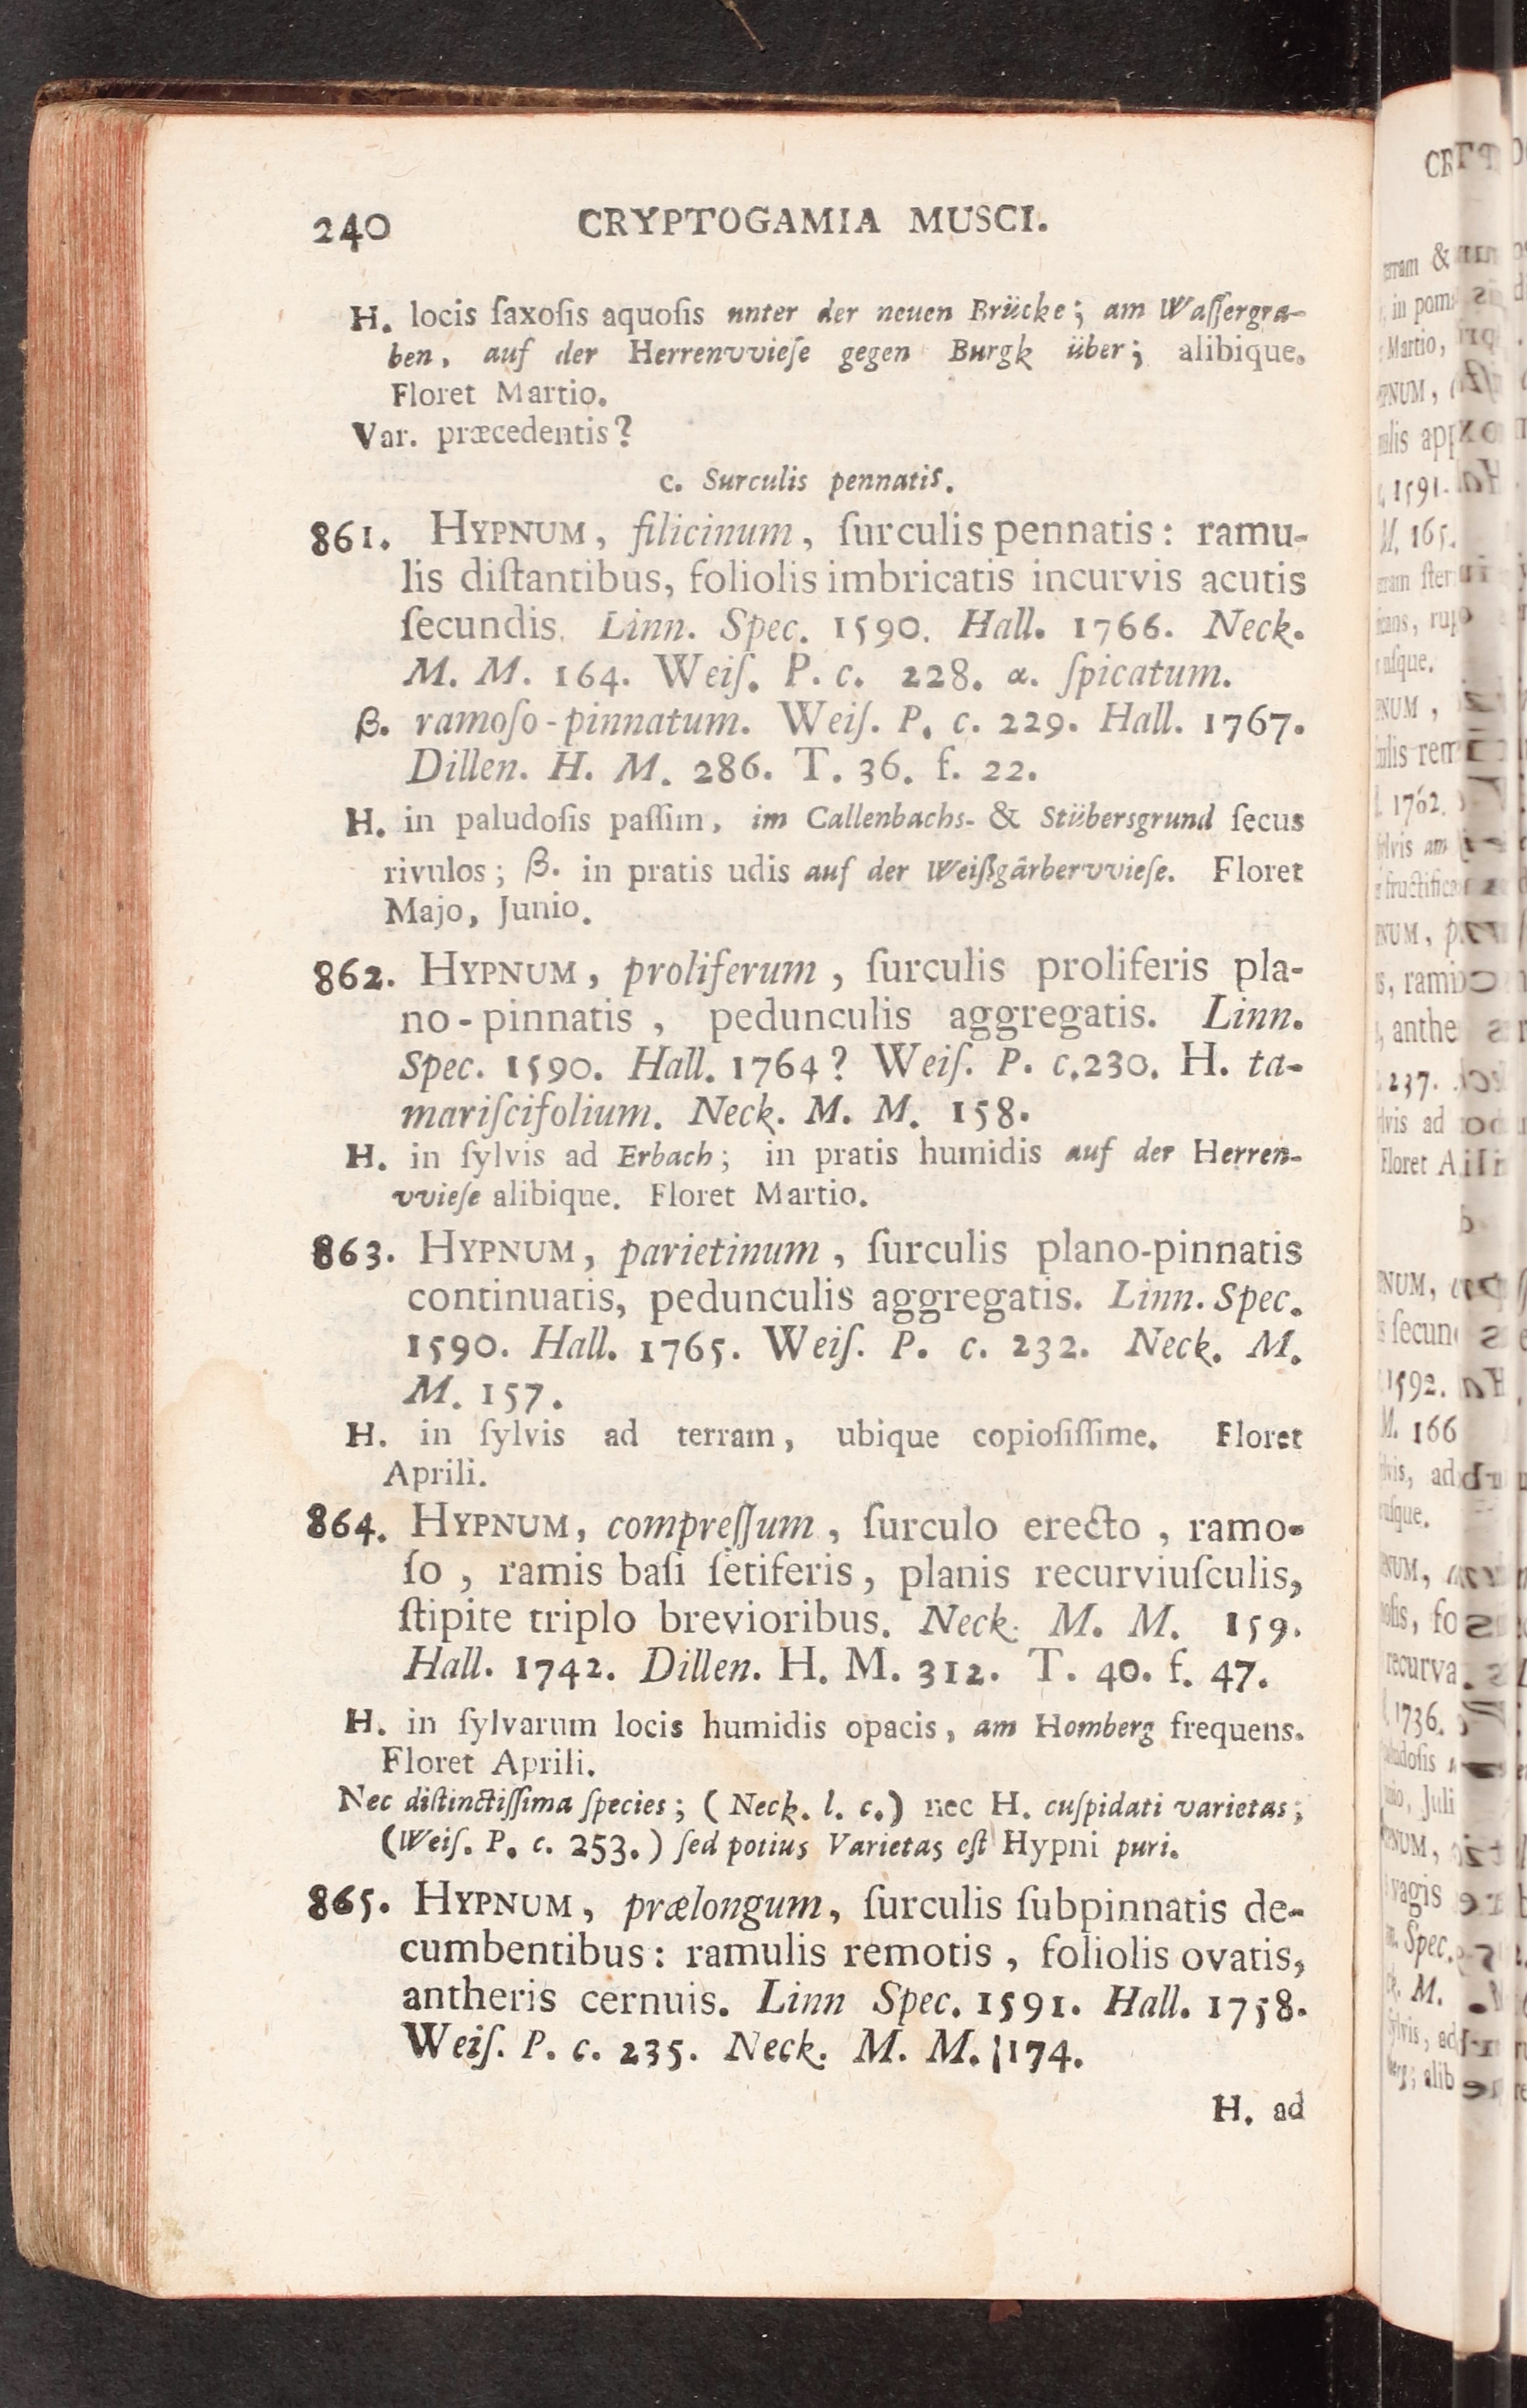 240 CRYPTOGAMIA MUSCI.
H. locis ſaxoſis aquoſis unter der neuen Brücke; am Waſſergra-
ben, auf der Herrenvvieſe gegen Burgk über; alibique.
Floret Martio.
Var. præcedentis?
c. Surculis pennatis.
861. HYPNUM, filicinum, ſurculis pennatis: ramu-
lis diſtantibus, foliolis imbricatis incurvis acutis
ſecundis. Linn. Spec. 1590. Hall. 1766. Neck.
M. M. 164. Weiſ. P. c. 228. α. ſpicatum.
β. ramoſo-pinnatum. Weiſ. P. c. 229. Hall. 1767.
Dillen. H. M. 286. T. 36. f. 22.
H. in paludoſis paſſim, im Callenbachs- & Stübersgrund ſecus
rivulos; β. in pratis udis auf der Weißgärbervvieſe. Floret
Majo, Junio.
862. HYPNUM, proliferum, ſurculis proliferis pla-
no-pinnatis, pedunculis aggregatis. Linn.
Spec. 1590. Hall. 1764? Weiſ. P. c. 230. H. ta-
mariſcifolium. Neck. M. M. 158.
H. in ſylvis ad Erbach; in pratis humidis auf der Herren-
vvieſe alibique. Floret Martio.
863. HYPNUM, parietinum, ſurculis plano-pinnatis
continuatis, pedunculis aggregatis. Linn. Spec.
1590. Hall. 1765. Weiſ. P. c. 232. Neck. M.
M. 157.
H. in ſylvis ad terram, ubique copioſiſſime. Floret
Aprili.
864. HYPNUM, compreſſum, ſurculo erecto, ramo-
ſo, ramis baſi ſetiferis, planis recurviuſculis,
ſtipite triplo brevioribus. Neck. M. M. 159.
Hall. 1742. Dillen. H. M. 312. T. 40. f. 47.
H. in ſylvarum locis humidis opacis, am Homberg frequens.
Floret Aprili.
Nec diſtinctiſſima ſpecies; (Neck. l. c.) nec H. cuſpidati varietas;
(Weiſ. P. c. 253.) ſed potius Varietas eſt Hypni puri.
865. HYPNUM, prælongum, ſurculis ſubpinnatis de-
cumbentibus: ramulis remotis, foliolis ovatis,
antheris cernuis. Linn Spec. 1591. Hall. 1758.
Weiſ. P. c. 235. Neck. M. M. 174.
H. ad